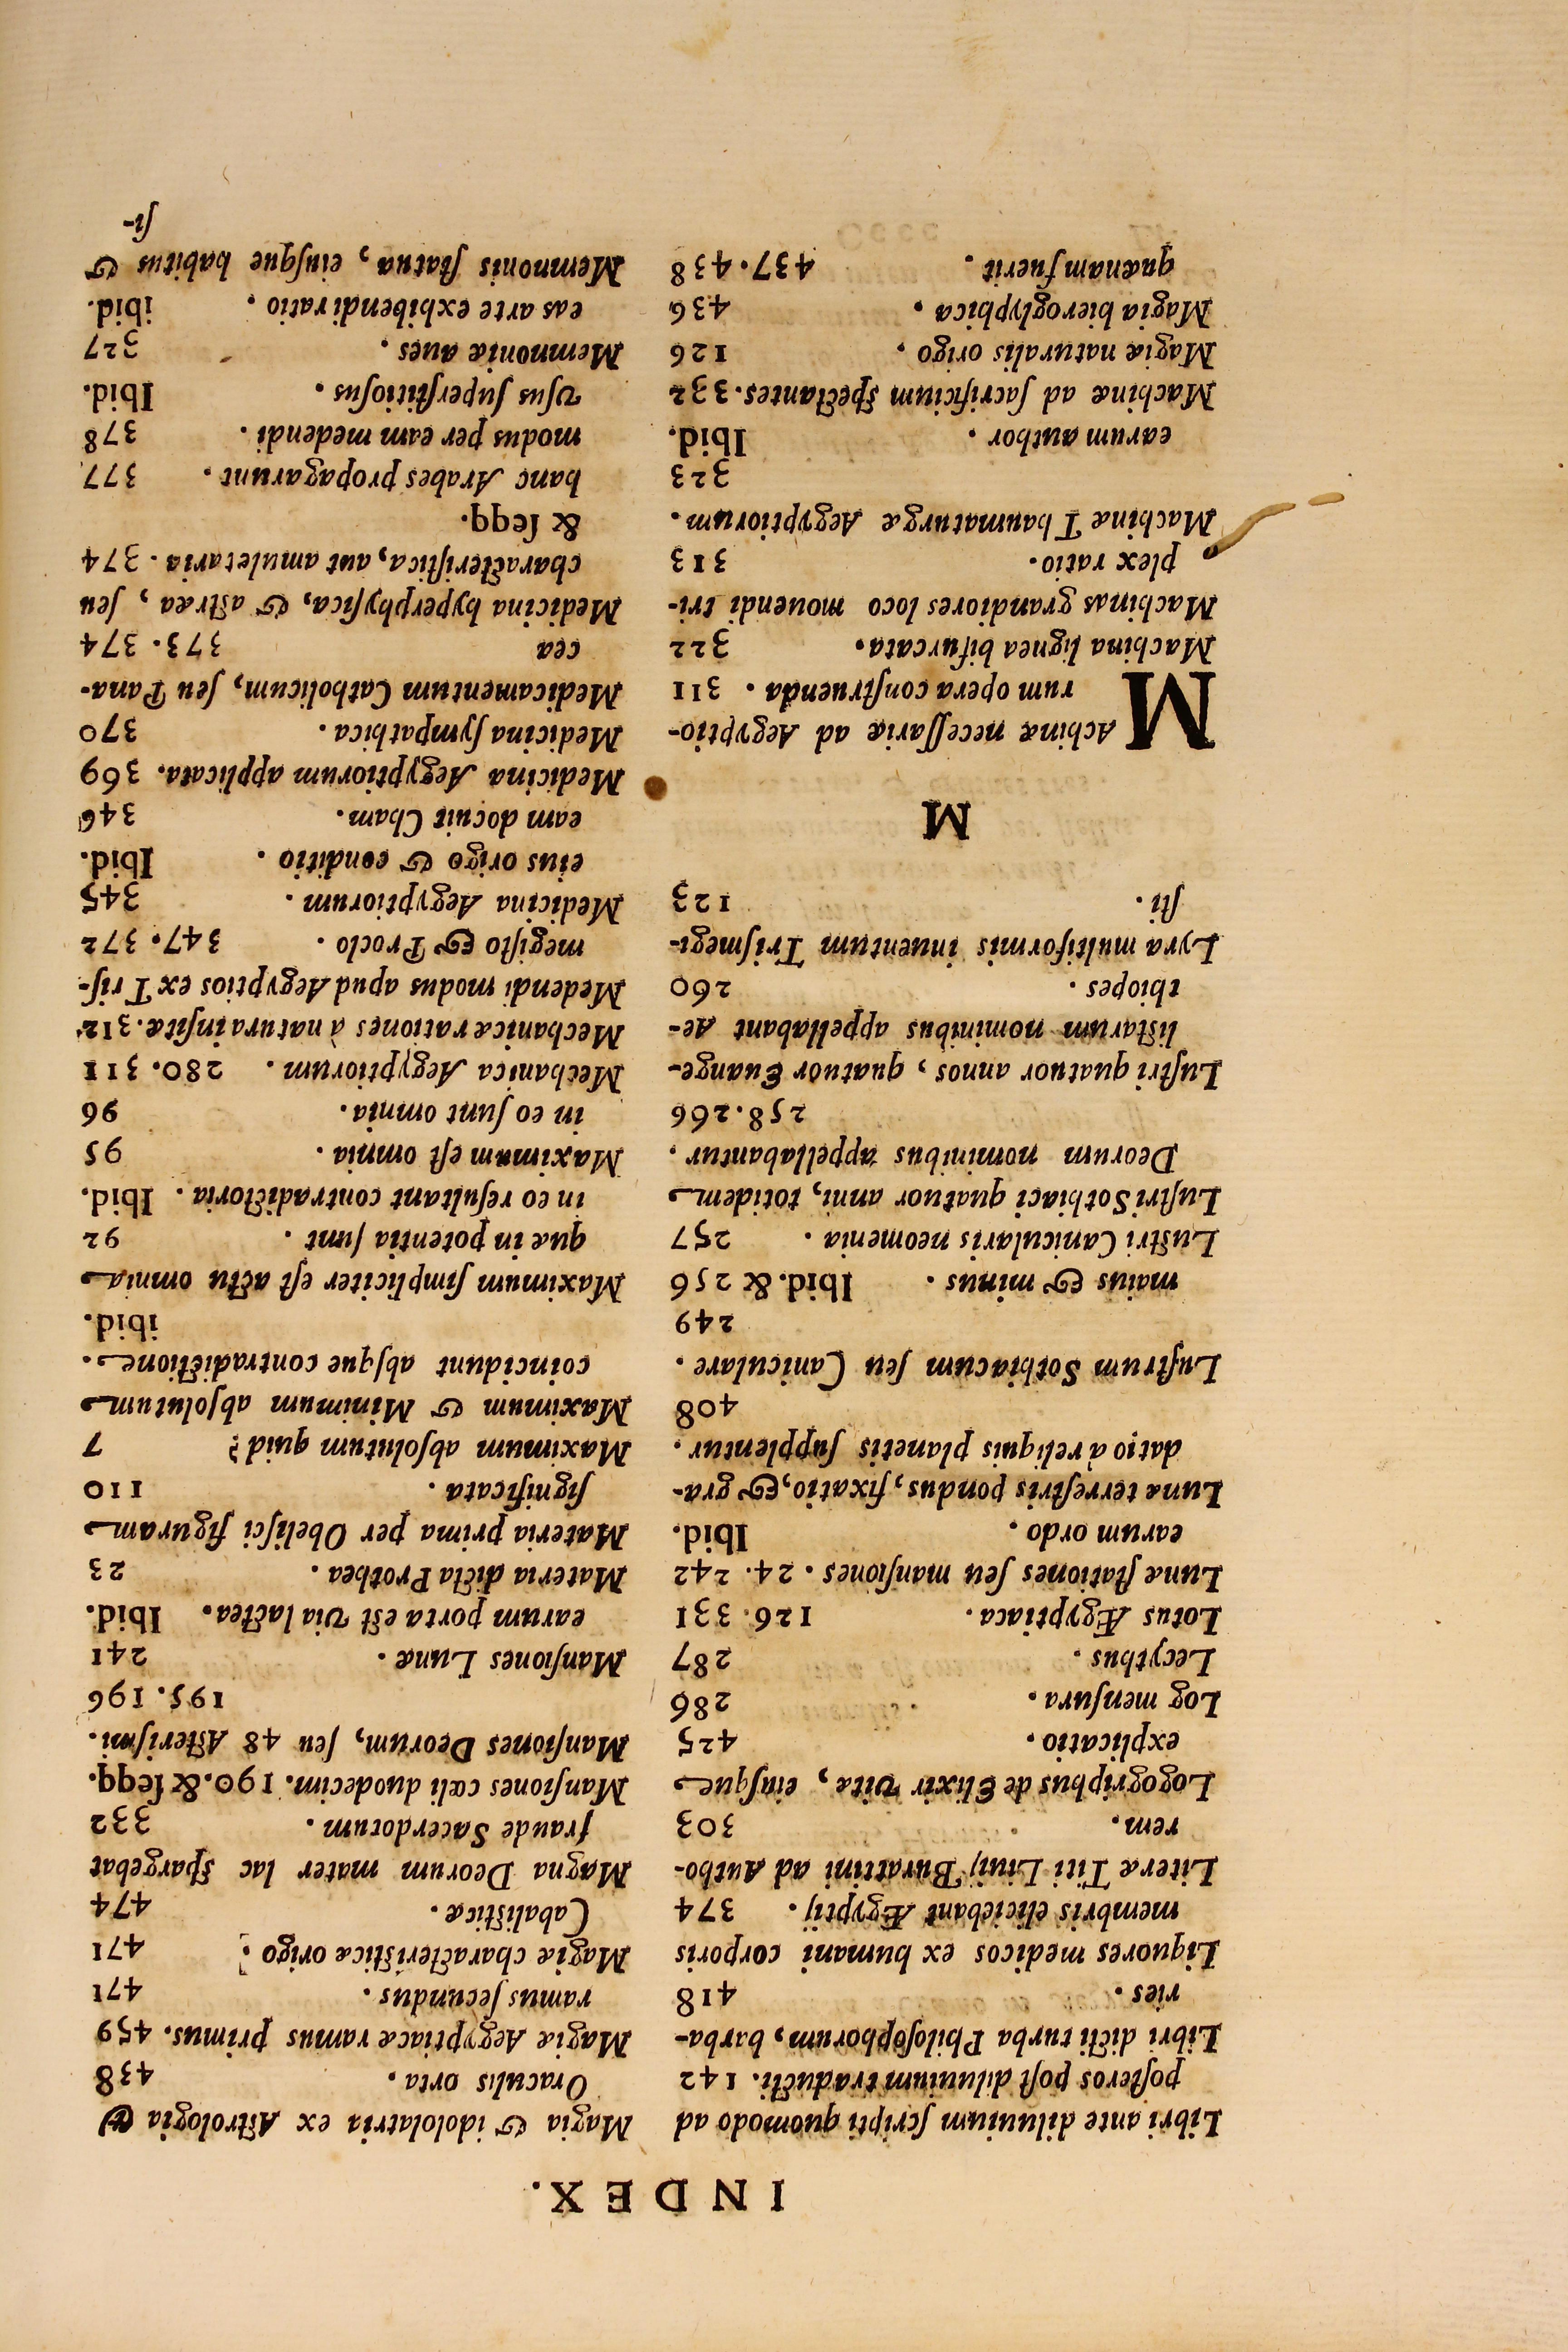 INDEX.
Libri ante diluuium ſcripti quomodo ad
poſteros poſt diluuium traducti. 142
Libri dicti turba Philoſophorum, barba-
ries. 418
Liquores medicos ex humani corporis
membris eliciebant Ægyptij. 374
Literæ Titi Liuij Burattini ad Autho-
rem. 303
Logogriphus de Elixir vitæ, eiuſque
explicatio. 425
Log menſura. 286
Lecythus. 287
Lotus Ægyptiaca. 126. 331
Lunæ ſtationes ſeu manſiones. 24. 242
earum ordo. Ibid.
Lunæ terreſtris pondus, fixatio, & gra-
datio à reliquis planetis ſupplentur.
408
Luſtrum Sothiacum ſeu Caniculare.
249
maius & minus. Ibid. & 256
Luſtri Canicularis neomenia. 257
Luſtri Sothiaci quatuor anni, totidem
Deorum nominibus appellabantur.
258. 266
Luſtri quatuor annos, quatuor Euange-
liſtarum nominibus appellabant Ae-
thiopes. 260
Lyra multiformis inuentum Triſmegi-
ſti. 123
M
MAchinæ neceſſariæ ad Aegyptio-
rum opera conſtruenda. 311
Machina lignea bifurcata. 322
Machinas grandiores loco mouendi tri-
plex ratio. 313
Machinæ Thaumaturgæ Aegyptiorum.
323
earum author. Ibid.
Machinæ ad ſacrificium ſpectantes. 332
Magiæ naturalis origo. 126
Magia hieroglyphica. 436
quænam fuerit. 437. 438
Magia & idololatria ex Aſtrologia &
Oraculis orta. 438
Magiæ Aegyptiacæ ramus primus. 459
ramus ſecundus. 471
Magiæ characteriſticæ origo. 471
Cabaliſticæ. 474
Magna Deorum mater lac ſpargebat
fraude Sacerdotum. 332
Manſiones cæli duodecim. 190. & ſeqq.
Manſiones Deorum, ſeu 48 Aſteriſmi.
195. 196
Manſiones Lunæ. 241
earum porta eſt via lactea. Ibid.
Materia dicta Prothea. 23
Materia prima per Obeliſci figuram
ſignificata. 110
Maximum abſolutum quid? 7
Maximum & Minimum abſolutum
coincidunt abſque contradictione.
ibid.
Maximum ſimpliciter eſt actu omnia
quæ in potentia ſunt. 92
in eo reſultant contradictoria. Ibid.
Maximum eſt omnia. 95
in eo ſunt omnia. 96
Mechanica Aegyptiorum. 280. 311
Mechanicæ rationes à natura inſitæ. 312
Medendi modus apud Aegyptios ex Triſ-
megiſto & Proclo. 347. 372
Medicina Aegyptiorum. 345
eius origo & conditio. Ibid.
eam docuit Cham. 346
Medicina Aegyptiorum applicata. 369
Medicina ſympathica. 370
Medicamentum Catholicum, ſeu Pana-
cea 373. 374
Medicina hyperphyſica, & aſtræa, ſeu
characteriſtica, aut amuletaria. 374
& ſeqq.
hanc Arabes propagarunt. 377
modus per eam medendi. 378
vſus ſuperſtitioſus. Ibid.
Memnoniæ aues. 327
eas arte exhibendi ratio. ibid.
Memnonis ſtatua, eiuſque habitus &
ſi-